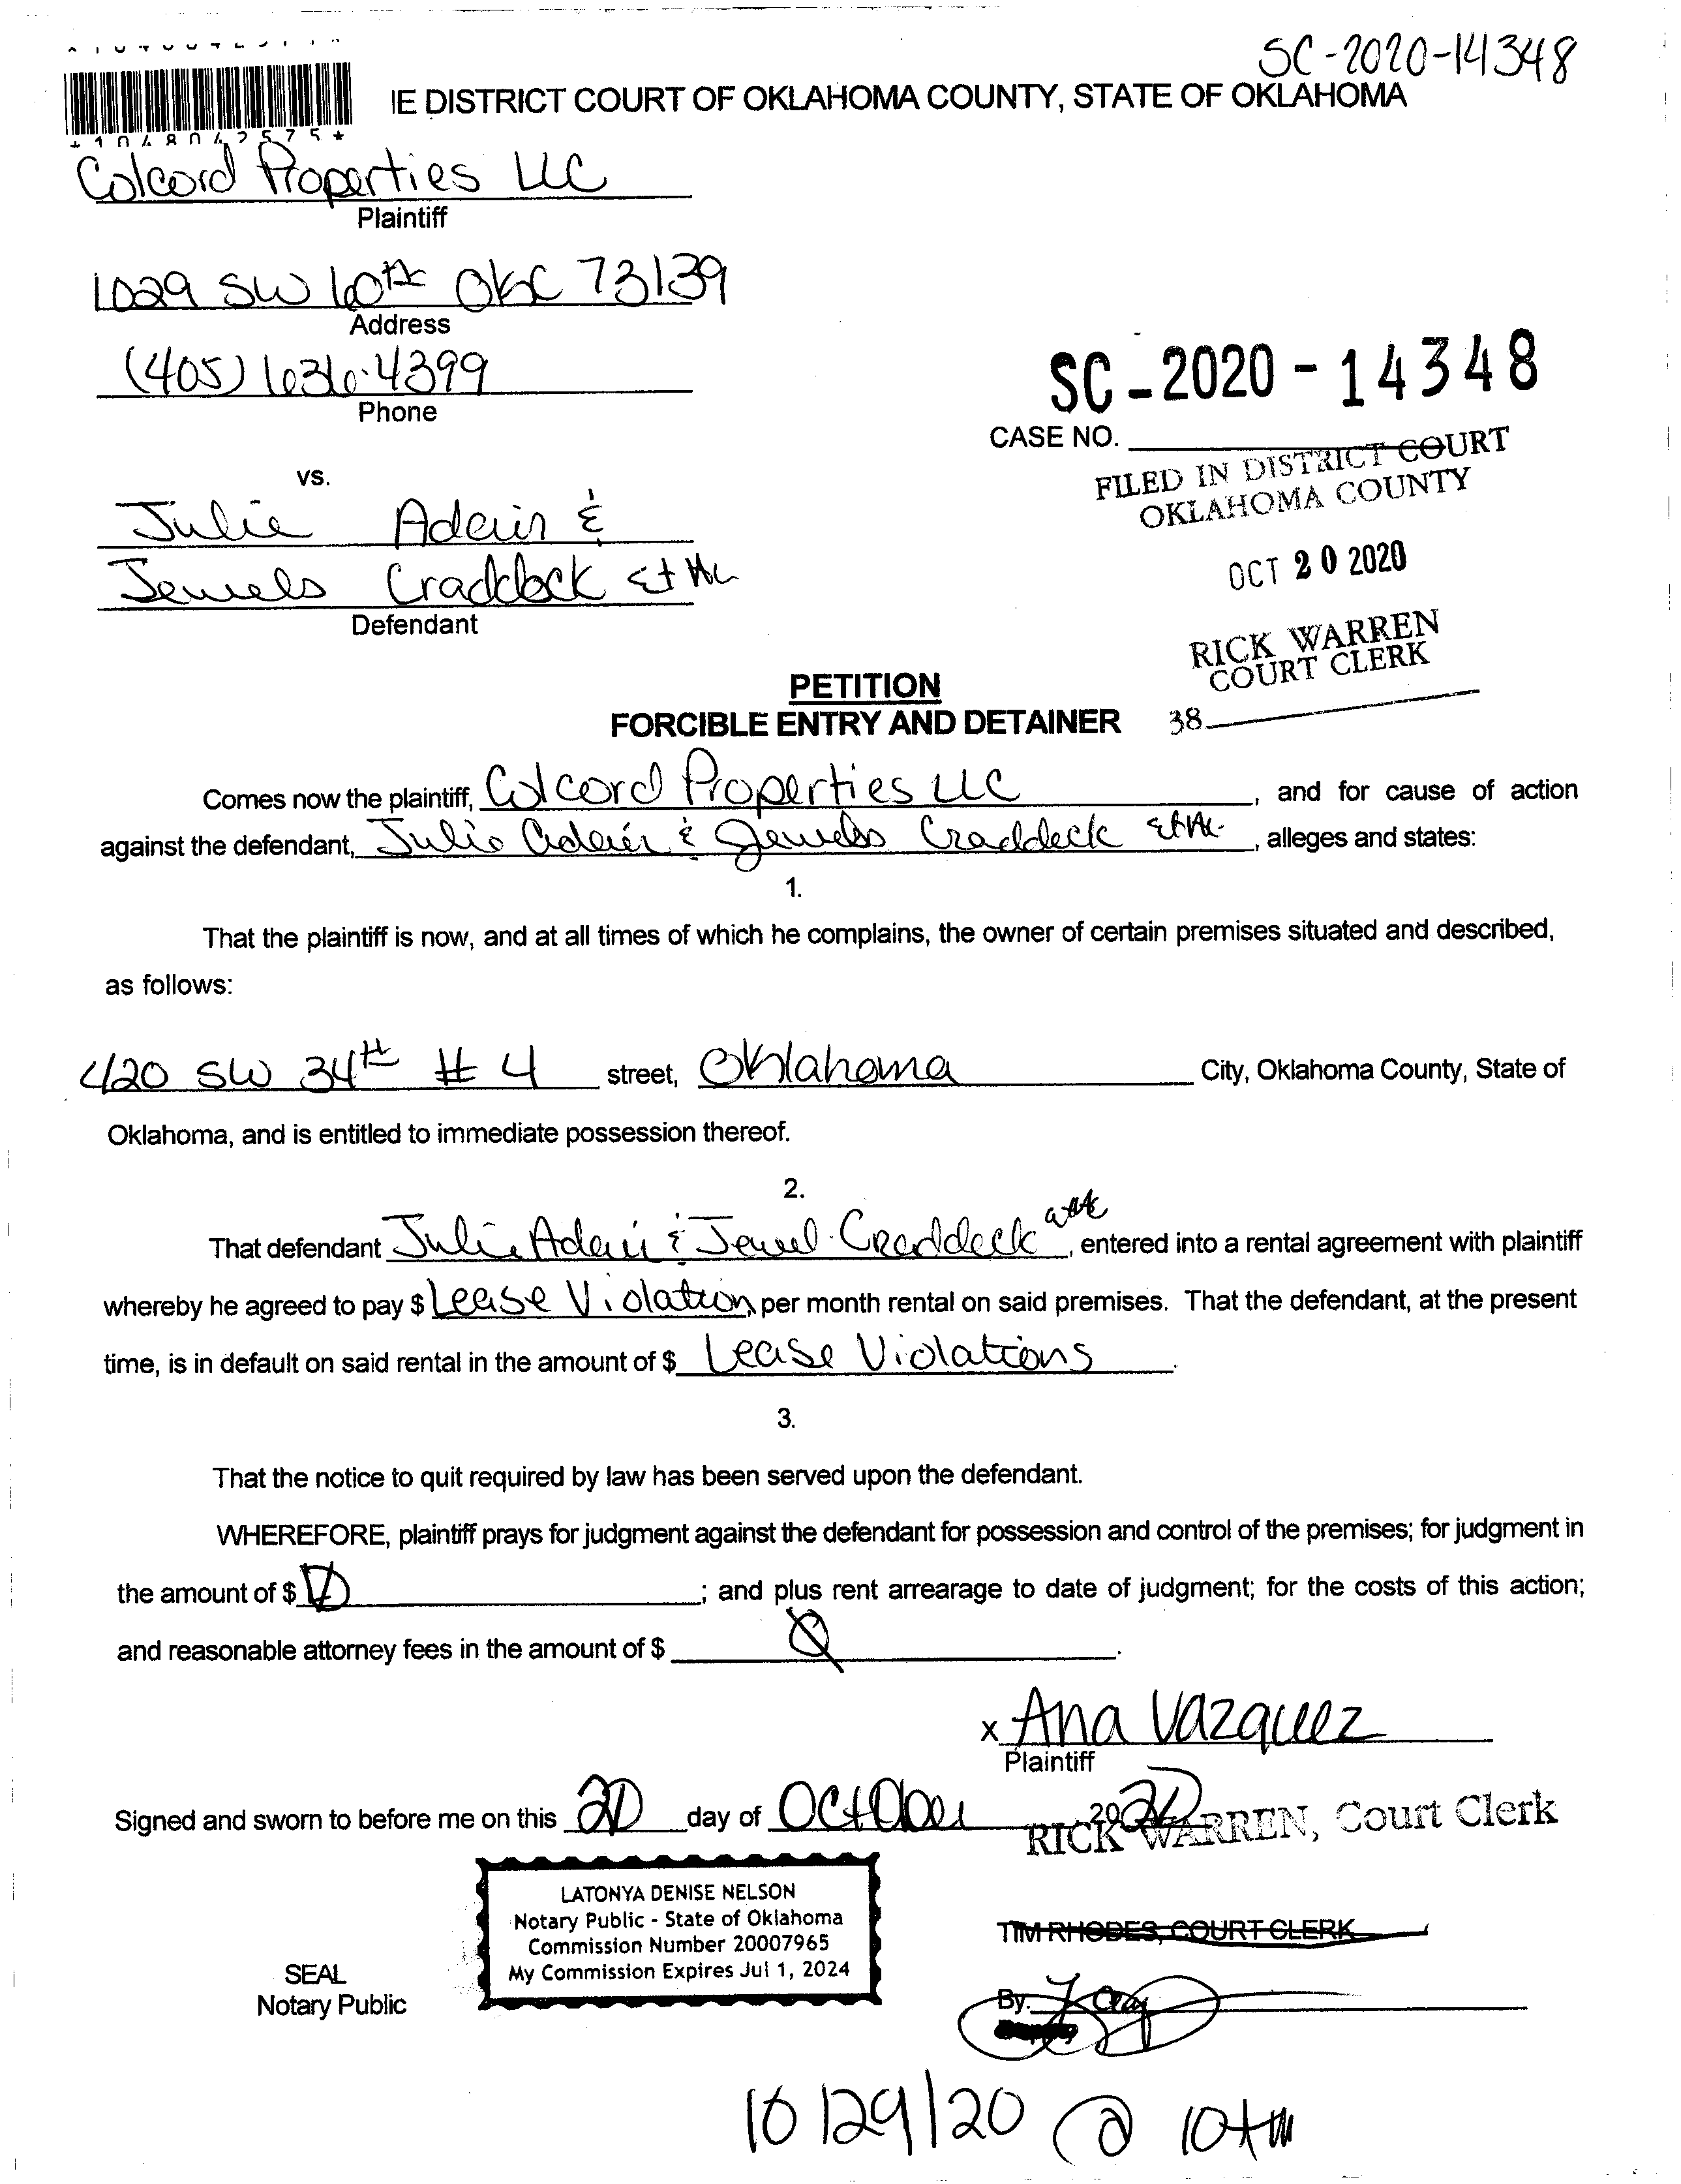 SC-2020-14348
*1048042575*
IE DISTRICT COURT OF OKLAHOMA COUNTY, STATE OF OKLAHOMA
Colcord Properties LLC
Plaintiff
1029 SW 60th OKC 73139
Address
(405) 636-4399
Phone
SC-2020-14348
CASE NO.
FILED IN DISTRICT COURT
OKLAHOMA COUNTY
OCT 20 2020
RICK WARREN
COURT CLERK
38
vs.
Julie Adair &
Jewels Craddock et al
Defendant
PETITION
FORCIBLE ENTRY AND DETAINER
Comes now the plaintiff, Colcord Properties LLC, and for cause of action
against the defendant, Julie Adair & Jewels Craddock, alleges and states:
1.
That the plaintiff is now, and at all times of which he complains, the owner of certain premises situated and described,
as follows:
420 SW 34th # 4 street, Oklahoma City, Oklahoma County, State of
Oklahoma, and is entitled to immediate possession thereof.
2.
That defendant Julie Adair & Jewel Craddock, entered into a rental agreement with plaintiff
whereby he agreed to pay $ Lease Violation per month rental on said premises. That the defendant, at the present
time, is in default on said rental in the amount of $ Lease Violations.
3.
That the notice to quit required by law has been served upon the defendant.
WHEREFORE, plaintiff prays for judgment against the defendant for possession and control of the premises; for judgment in
the amount of $ ; and plus rent arrearage to date of judgment; for the costs of this action;
and reasonable attorney fees in the amount of $ .
x Ana Vazquez
Plaintiff
Signed and sworn to before me on this 20 day of October 2020
RICK WARREN, Court Clerk
LATONYA DENISE NELSON
Notary Public - State of Oklahoma
Commission Number 20007965
My Commission Expires Jul 1, 2024
SEAL
Notary Public
TIM RHODES, COURT CLERK
By.
Deputy
10/29/20 @ 10am